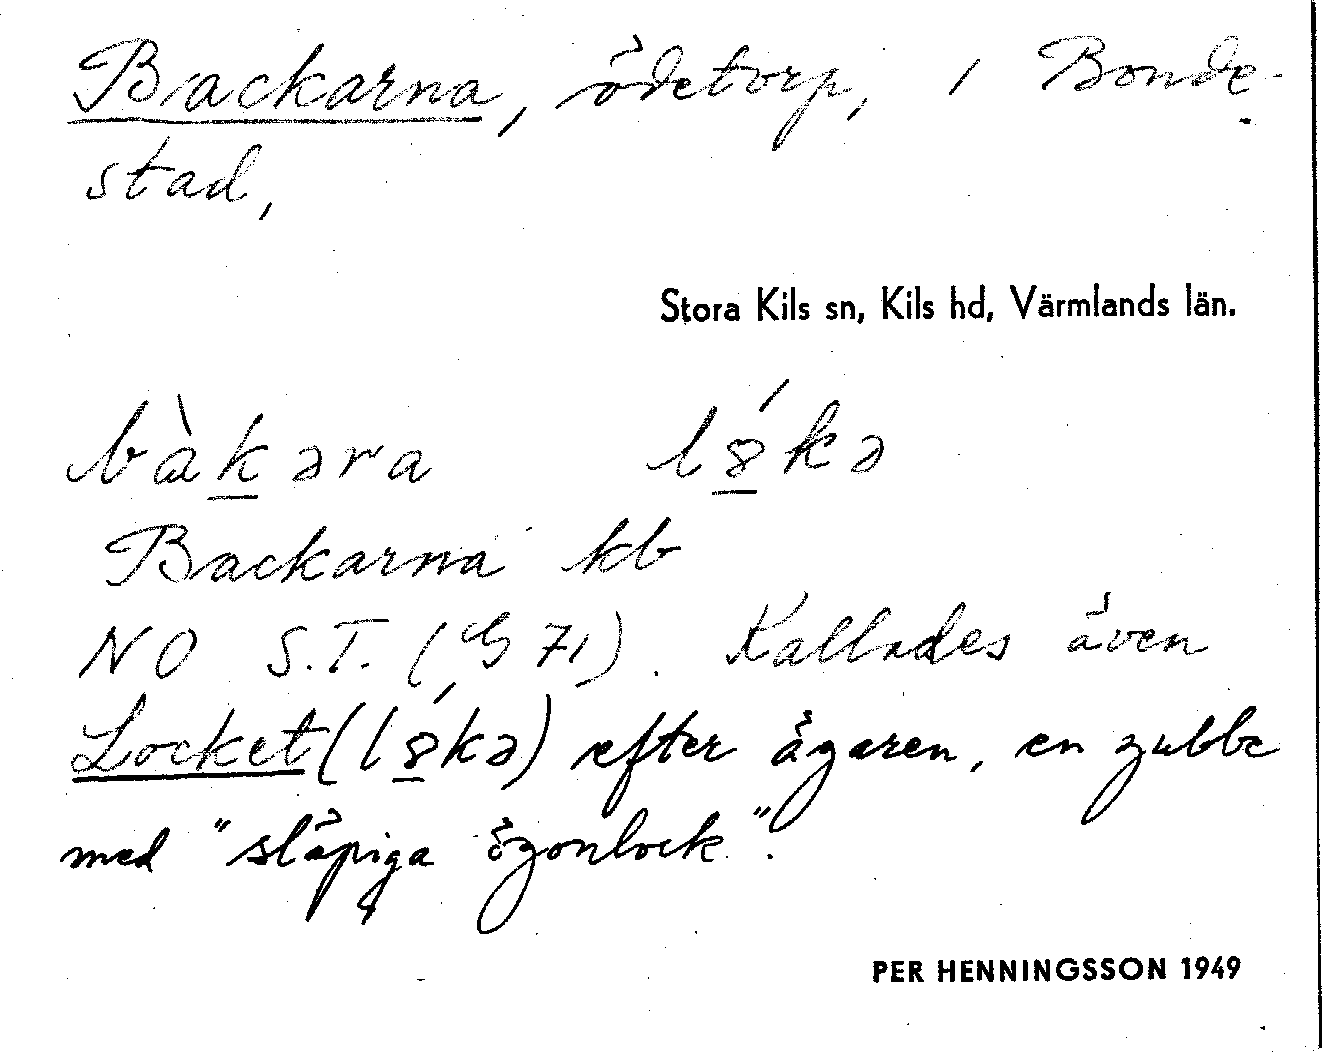 Backarna, ödetorp, i Bonde-
stad,
Stora Kils sn, Kils hd, Värmlands län.
bàk̲əra ló̲kə
Backarna kb
NO S.T. (G 71). Kallades även
Locket (ló̲kə) efter ägaren, en gubbe
med "släpiga ögonlock".
PER HENNINGSSON 1949